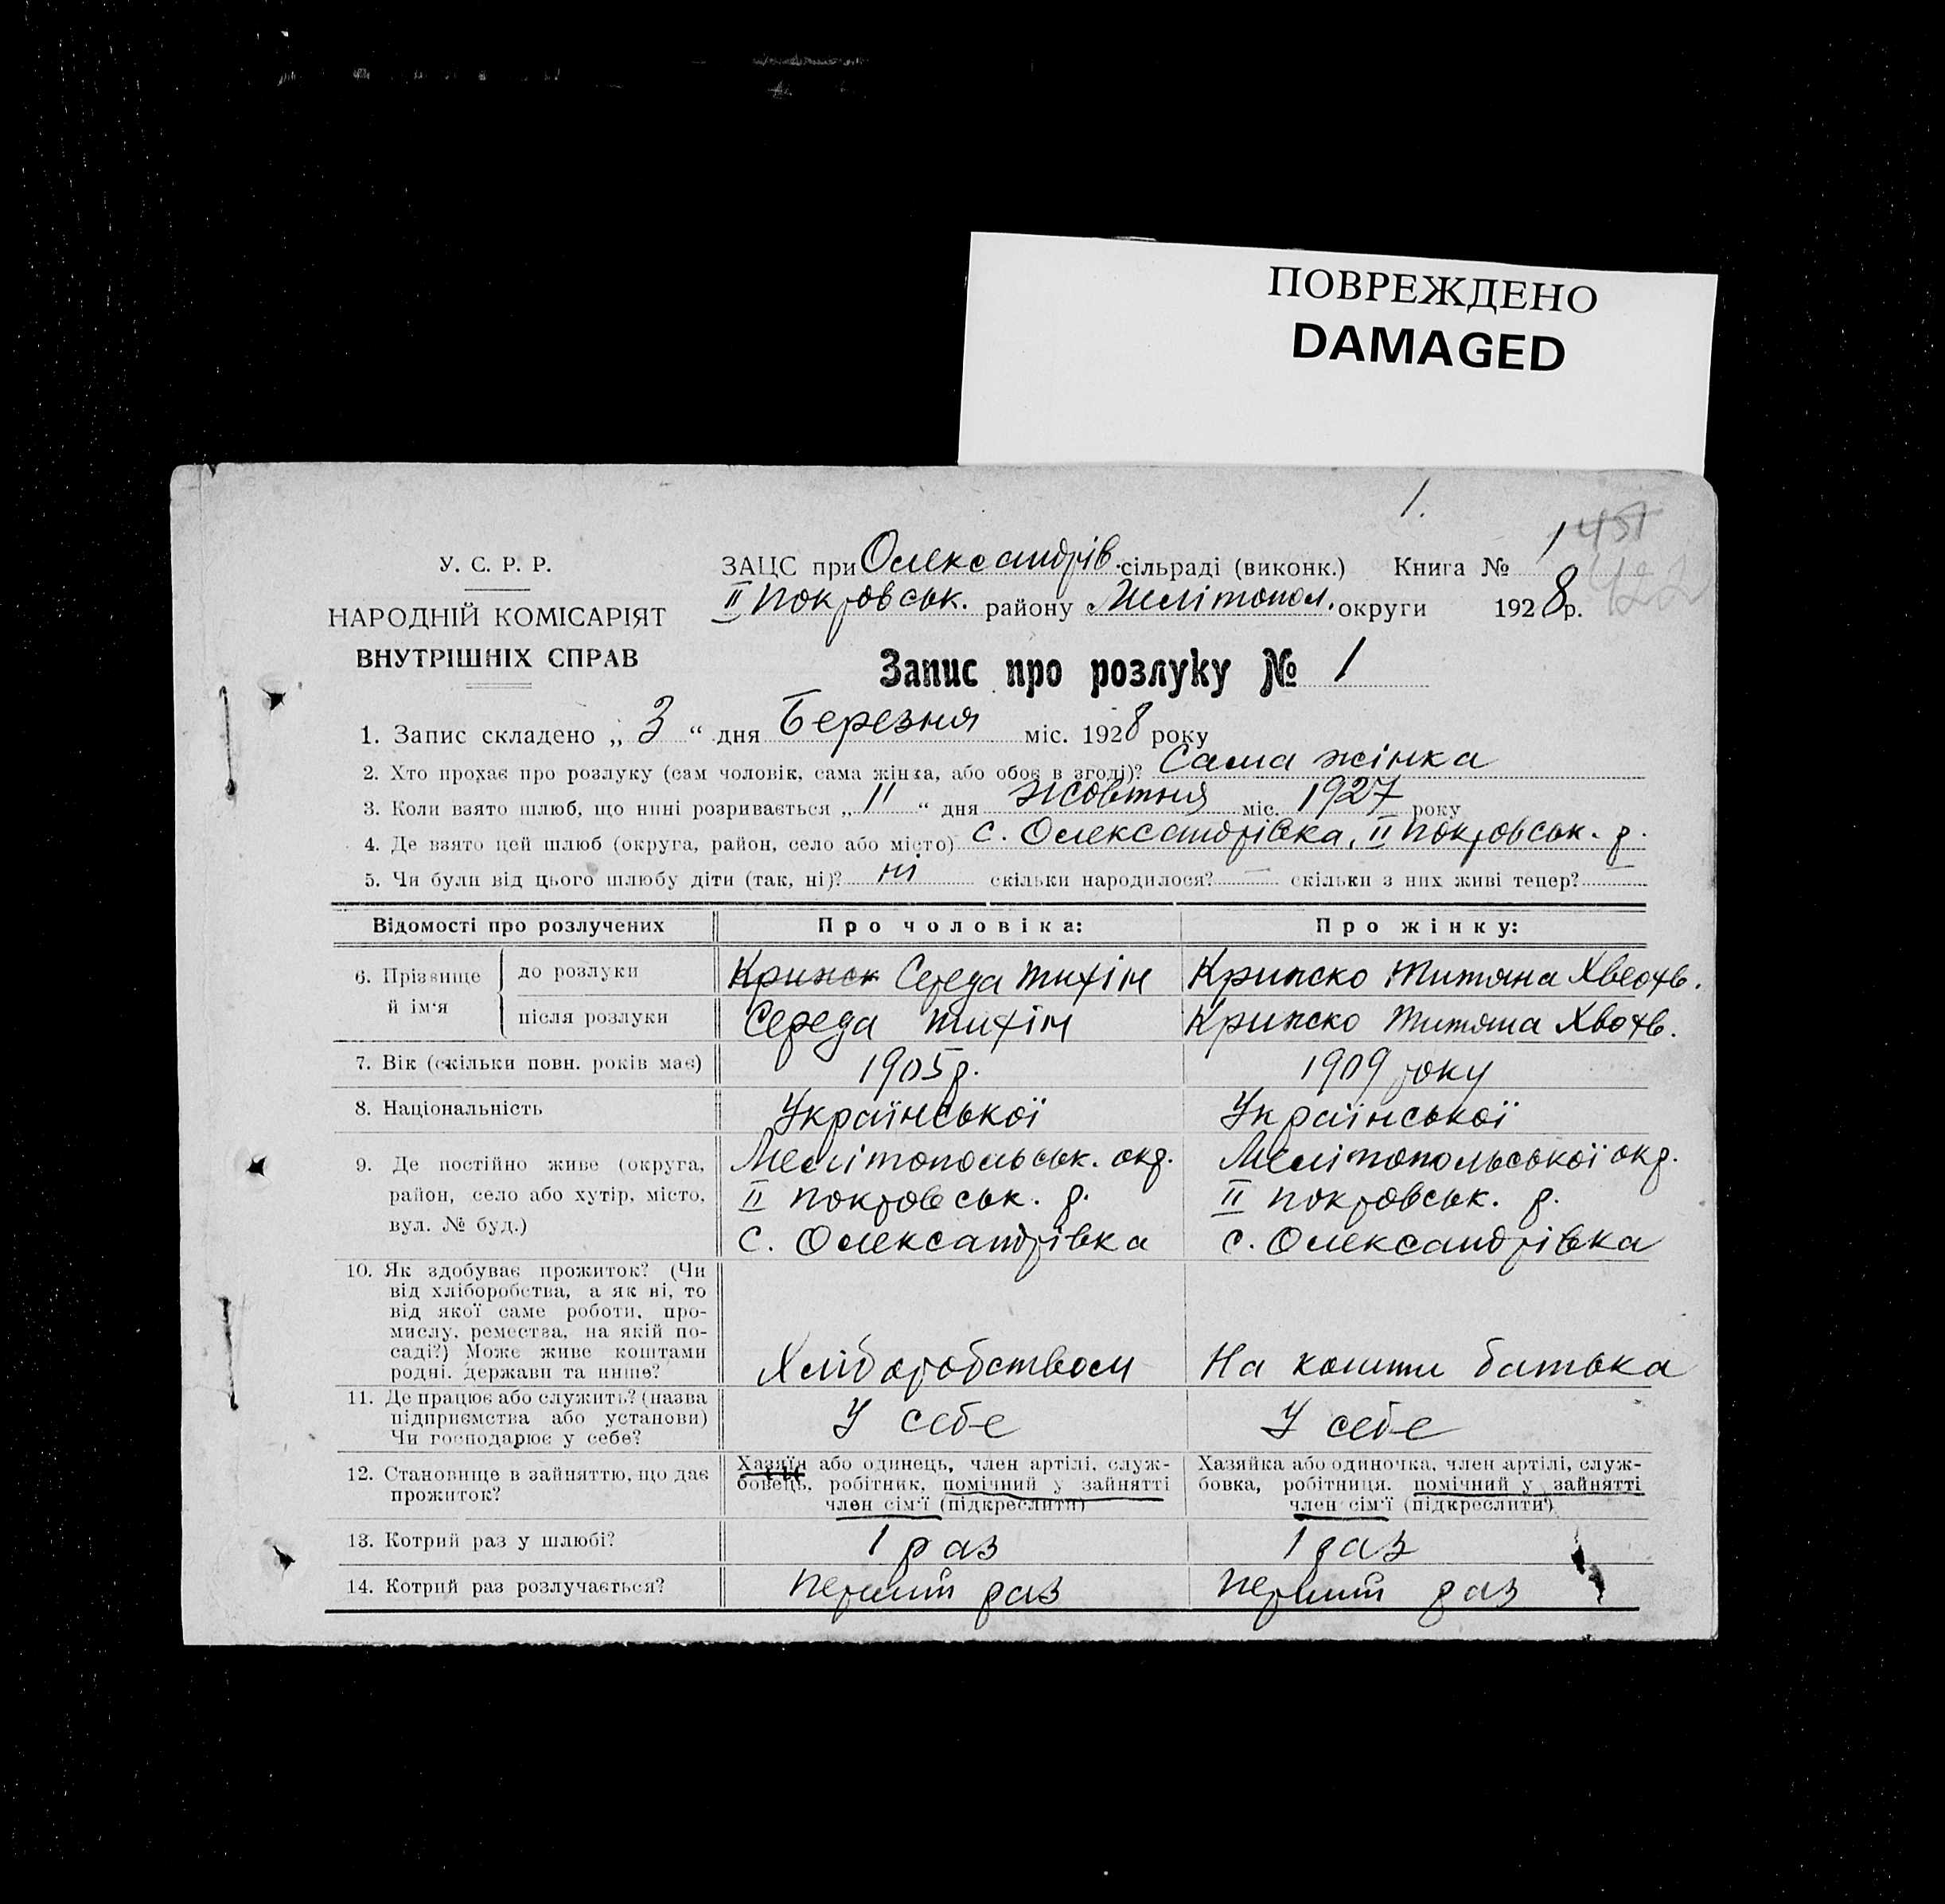 ПОВРЕЖДЕНО
DAMAGED
1.
У. С. Р. Р.
НАРОДНІЙ КОМІСАРІЯТ
ВНУТРІШНІХ СПРАВ
ЗАЦС при Олександрів. сільраді (виконк.) Книга № 1
II Покровськ. району Мелітопол. округи 1928 р.
Запис про розлуку № 1
1. Запис складено „ 3 “ дня Березня міс. 1928 року
2. Хто прохає про розлуку (сам чоловік, сама жінка, або обоє в згоді)? Сама жінка
3. Коли взято шлюб, що нині розривається „ 11 “ дня жовтня міс. 1927 року
4. Де взято цей шлюб (округа, район, село або місто) с. Олександрівка, II Покровськ. р.
5. Чи були від цього шлюбу діти (так, ні)? ні скільки народилося? — скільки з них живі тепер? —
Відомості про розлучених Про чоловіка: Про жінку:
6. Прізвище й ім'я
до розлуки Середа Тихін Крипско Титяна Хвеотв.
після розлуки Середа Тихін Крипско Титяна Хвотв.
7. Вік (скільки повн. років має) 1905 р. 1909 року
8. Національність Української Української
9. Де постійно живе (округа, район, село або хутір, місто, вул. № буд.)
Мелітопольськ. окр. Мелітопольської окр.
II Покровськ. р. II Покровськ. р.
с. Олександрівка с. Олександрівка
10. Як здобуває прожиток? (Чи
від хліборобства, а як ні, то
від якої саме роботи, про-
мислу, ремества, на якій по-
саді?) Може живе коштами
родні, держави та инше? Хліборобством На кошти батька
11. Де працює або служить? (назва
підприємства або установи)
Чи господарює у себе? У себе У себе
12. Становище в зайняттю, що дає
прожиток?
Хазяїн або одинець, член артілі, служ-
бовець, робітник, помічний у зайнятті
член сім'ї (підкреслити)
Хазяйка або одиночка, член артілі, служ-
бовка, робітниця, помічний у зайнятті
член сім'ї (підкреслити)
13. Котрий раз у шлюбі? 1 раз 1 раз
14. Котрий раз розлучається? перший раз перший раз